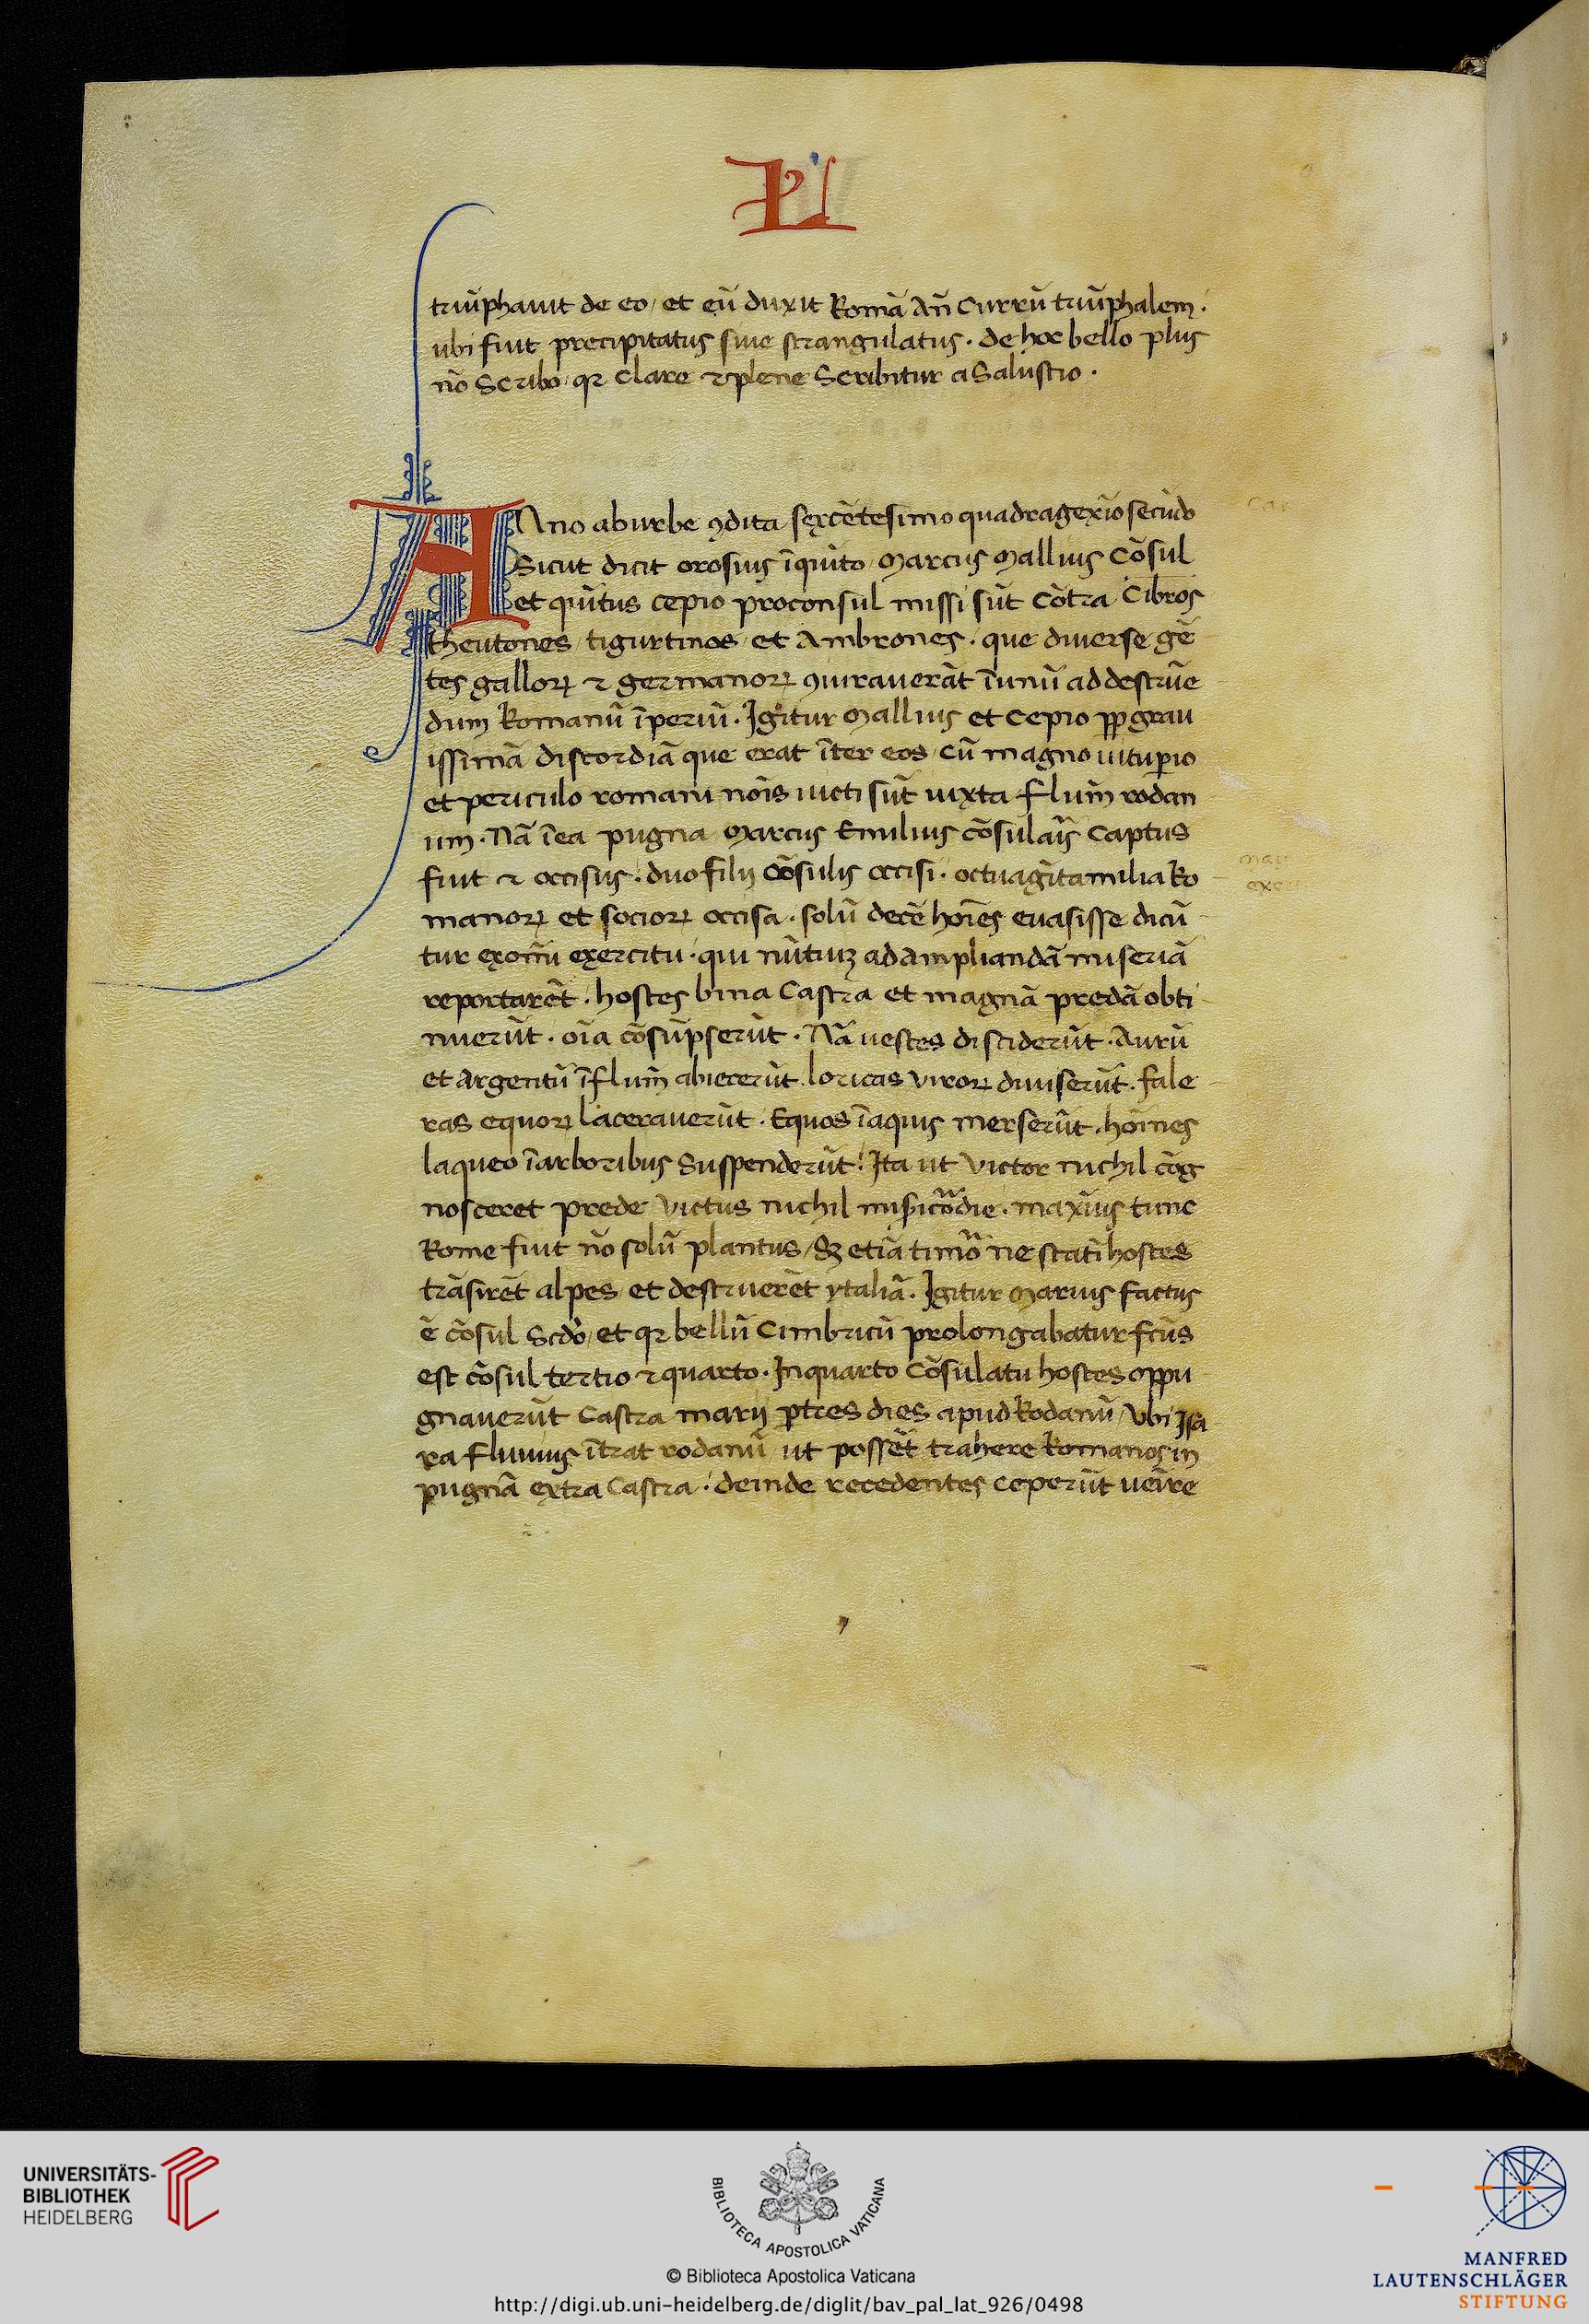 LI
triūphauit de eo / et eū duxit Romā An̄ Currū triūphalem .
ubi fuit precipitatus siue strangulatus . de hoc bello plus
nō Scribo / qꝛ clare ⁊ plene Scribitur a Salustio .
Ano ab urbe ꝯdita sexcētesimo quadragexīo secūdo
Sicut dicit orosius ī quīto / Marcus Mallius Cōsul
et quītus cepio proconsul missi sūt Cōtra Cībros
theutones / tigurtinos / et Ambrones . que diuerse gē
tes galloꝝ ⁊ germanoꝝ ꝯiurauerāt ī unū ad destrūe
dum Romanū īperiū . Igitur Mallius et Cepio ꝓp grau
issimā discordiā que erat īter eos / cū magno uituꝑio
et periculo romani nōis uicti sūt iuxta flum̄ rodan
um . Nā ī ea pugna Marcus Emilius cōsulaīs Captus
fuit ⁊ occisus . duo filij Cōsulis occisi . octuagīta milia Ro
manoꝝ et socioꝝ occisa . solū decē hoīes euasisse dicū
tur ex om̄i exercitu . qui nūtiuꝫ ad ampliandā miseriā
reportarēt . hostes bina Castra et magnā predā obti
nuerūt . oīa cōsūpserūt . Nā uestes disciderūt . Aurū
et Argentū ī flum̄ abiecerūt . loricas viroꝝ diuiserūt . fale
ras equoꝝ lacerauerūt . Equos ī aquis merserūt . hoīnes
laqueo ī arboribus Suspenderūt . Ita ut Victor nichil cōg
nosceret prede Victus nichil miꝫicōꝛdie . maxīus tunc
Rome fuit nō solū plantus / sꝫ etiā timōꝛ ne statī hostes
trāsirēt alpes / et destruerēt ytaliā . Igitur Marius factus
ē cōsul Scdō / et qꝛ bellū Cimbricū prolongabatur fcūs
est cōsul tertio ⁊ quarto . In quarto Cōsulatu hostes oppu
gnauerūt Castra marij ꝑ tres dies apud Rodanū / Vbi Isa
ra fluuius ītrat rodanū / ut possēt trahere Romanos in
pugnā extra Castra . deinde recedentes ceperūt ueīre
UNIVERSITÄTS-
BIBLIOTHEK
HEIDELBERG
BIBLIOTECA APOSTOLICA VATICANA
© Biblioteca Apostolica Vaticana
http://digi.ub.uni-heidelberg.de/diglit/bav_pal_lat_926/0498
MANFRED
LAUTENSCHLÄGER
STIFTUNG